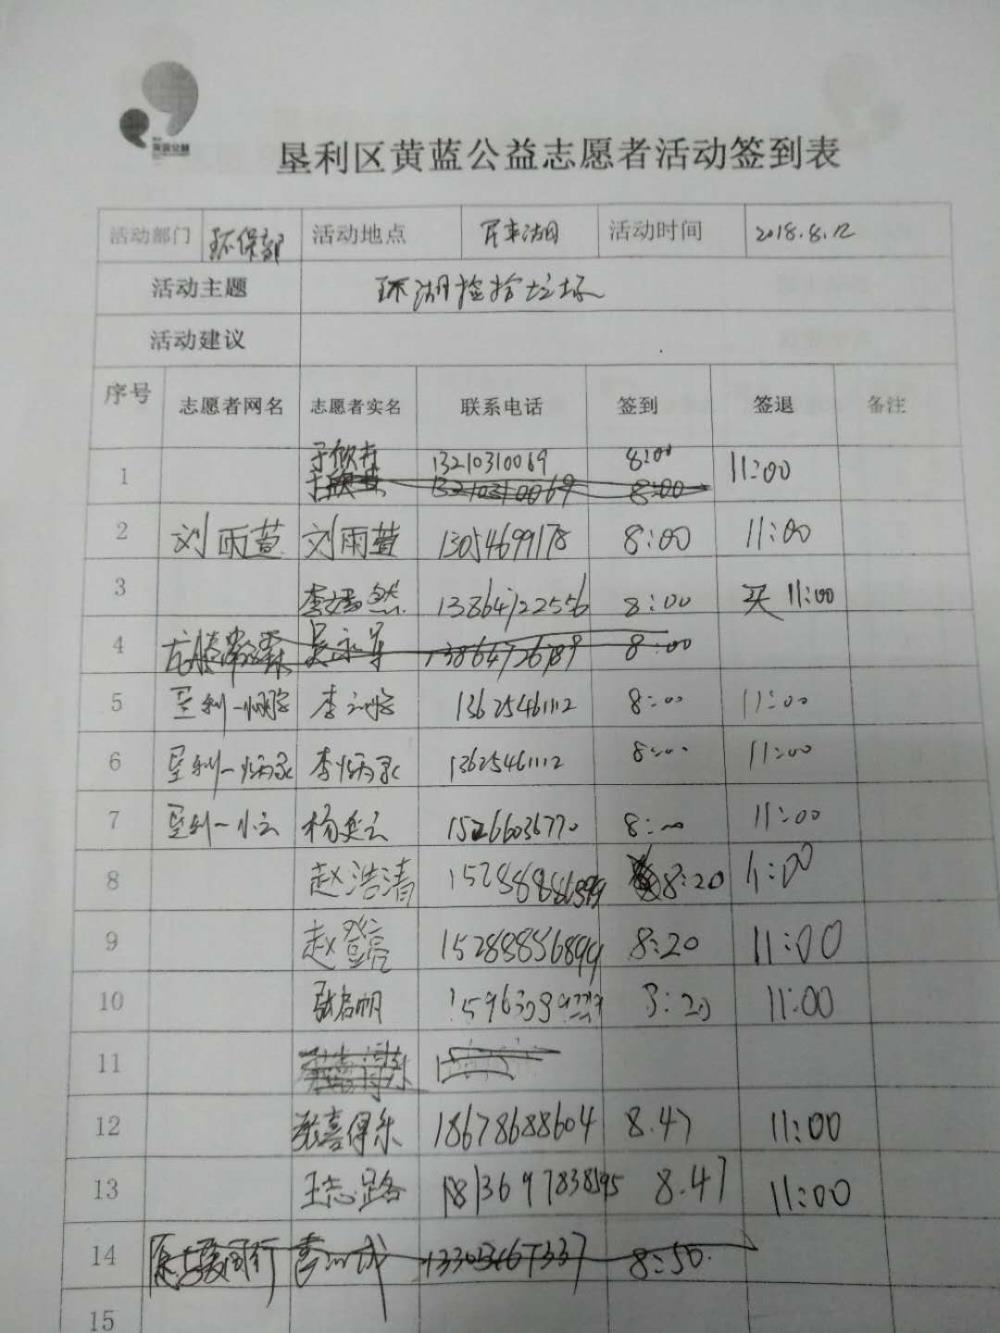 垦利区黄蓝公益志愿者活动签到表
活动部门 环保部 活动地点 活动时间 2018.8.12
活动主题 环湖捡拾垃圾
活动建议
序号 志愿者网名 志愿者实名 联系电话 签到 签退 备注
1 13210310069 8:00 11:00
13210310069 8:00
2 刘雨萱 刘雨萱 13054699178 8:00 11:00
3 李嫣然 13864722556 8:00 11:00
4 8:00
5 垦利一 李 13625461112 8:00 11:00
6 垦利一炳承 李炳承 13625461112 8:00 11:00
7 垦利一小云 杨奕云 15266036770 8:00 11:00
8 赵浩清 8:20 11:00
9 赵登亮 15288856899 8:20 11:00
10 张启帆 8:20 11:00
11
12 张喜得乐 18678688604 8.47 11:00
13 王志路 8.47 11:00
14 8:50
15